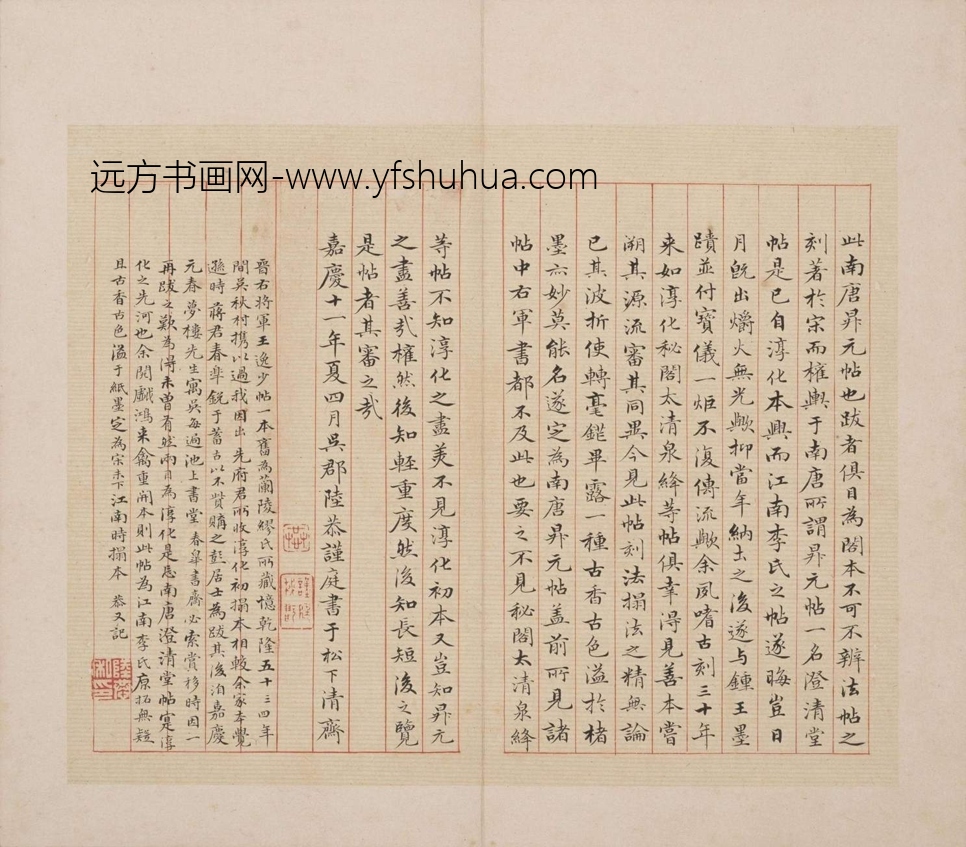 远方书画网-www.yfshuhua.com
此南唐昇元帖也跋者俱目為閣本不可不辨法帖之
刻著於宋而權輿于南唐所謂昇元帖一名澄清堂
帖是已自淳化本興而江南李氏之帖遂晦豈日
月既出爝火無光歟抑當年納土之後遂与鍾王墨
蹟並付寶儀一炬不復傳流歟余夙嗜古刻三十年
来如淳化秘閣太清泉絳等帖俱幸得見善本嘗
溯其源流審其同異今見此帖刻法搨法之精無論
已其波折使轉毫鋩畢露一種古香古色溢於楮
墨六妙莫能名遂定為南唐昇元帖盖前所見諸
帖中右軍書都不及此也要之不見秘閣太清泉絳
等帖不知淳化之盡美不見淳化初本又豈知昇元
之盡善哉權然後知輕重度然後知長短後之覽
是帖者其審之哉
嘉慶十一年夏四月吳郡陸恭謹庭書于松下清齋
晋右将軍王逸少帖一本舊為蘭陵繆氏所藏憶乾隆五十三四年
間吳秋村携以過我因出先府君所收淳化初搨本相較余家本覺
遜時蔣君春皋銳于蓄古以不貲購之彭居士為跋其後洎嘉慶
元春夢樓先生寓吳每過池上書堂春皋書齋必索賞移時因一
再跋之歎為得未曾有然而目為淳化是忘南唐澄清堂帖寔淳
化之先河也余閱戲鴻来禽重開本則此帖為江南李氏原拓無疑
且古香古色溢于紙墨定為宋未下江南時搨本 恭又記